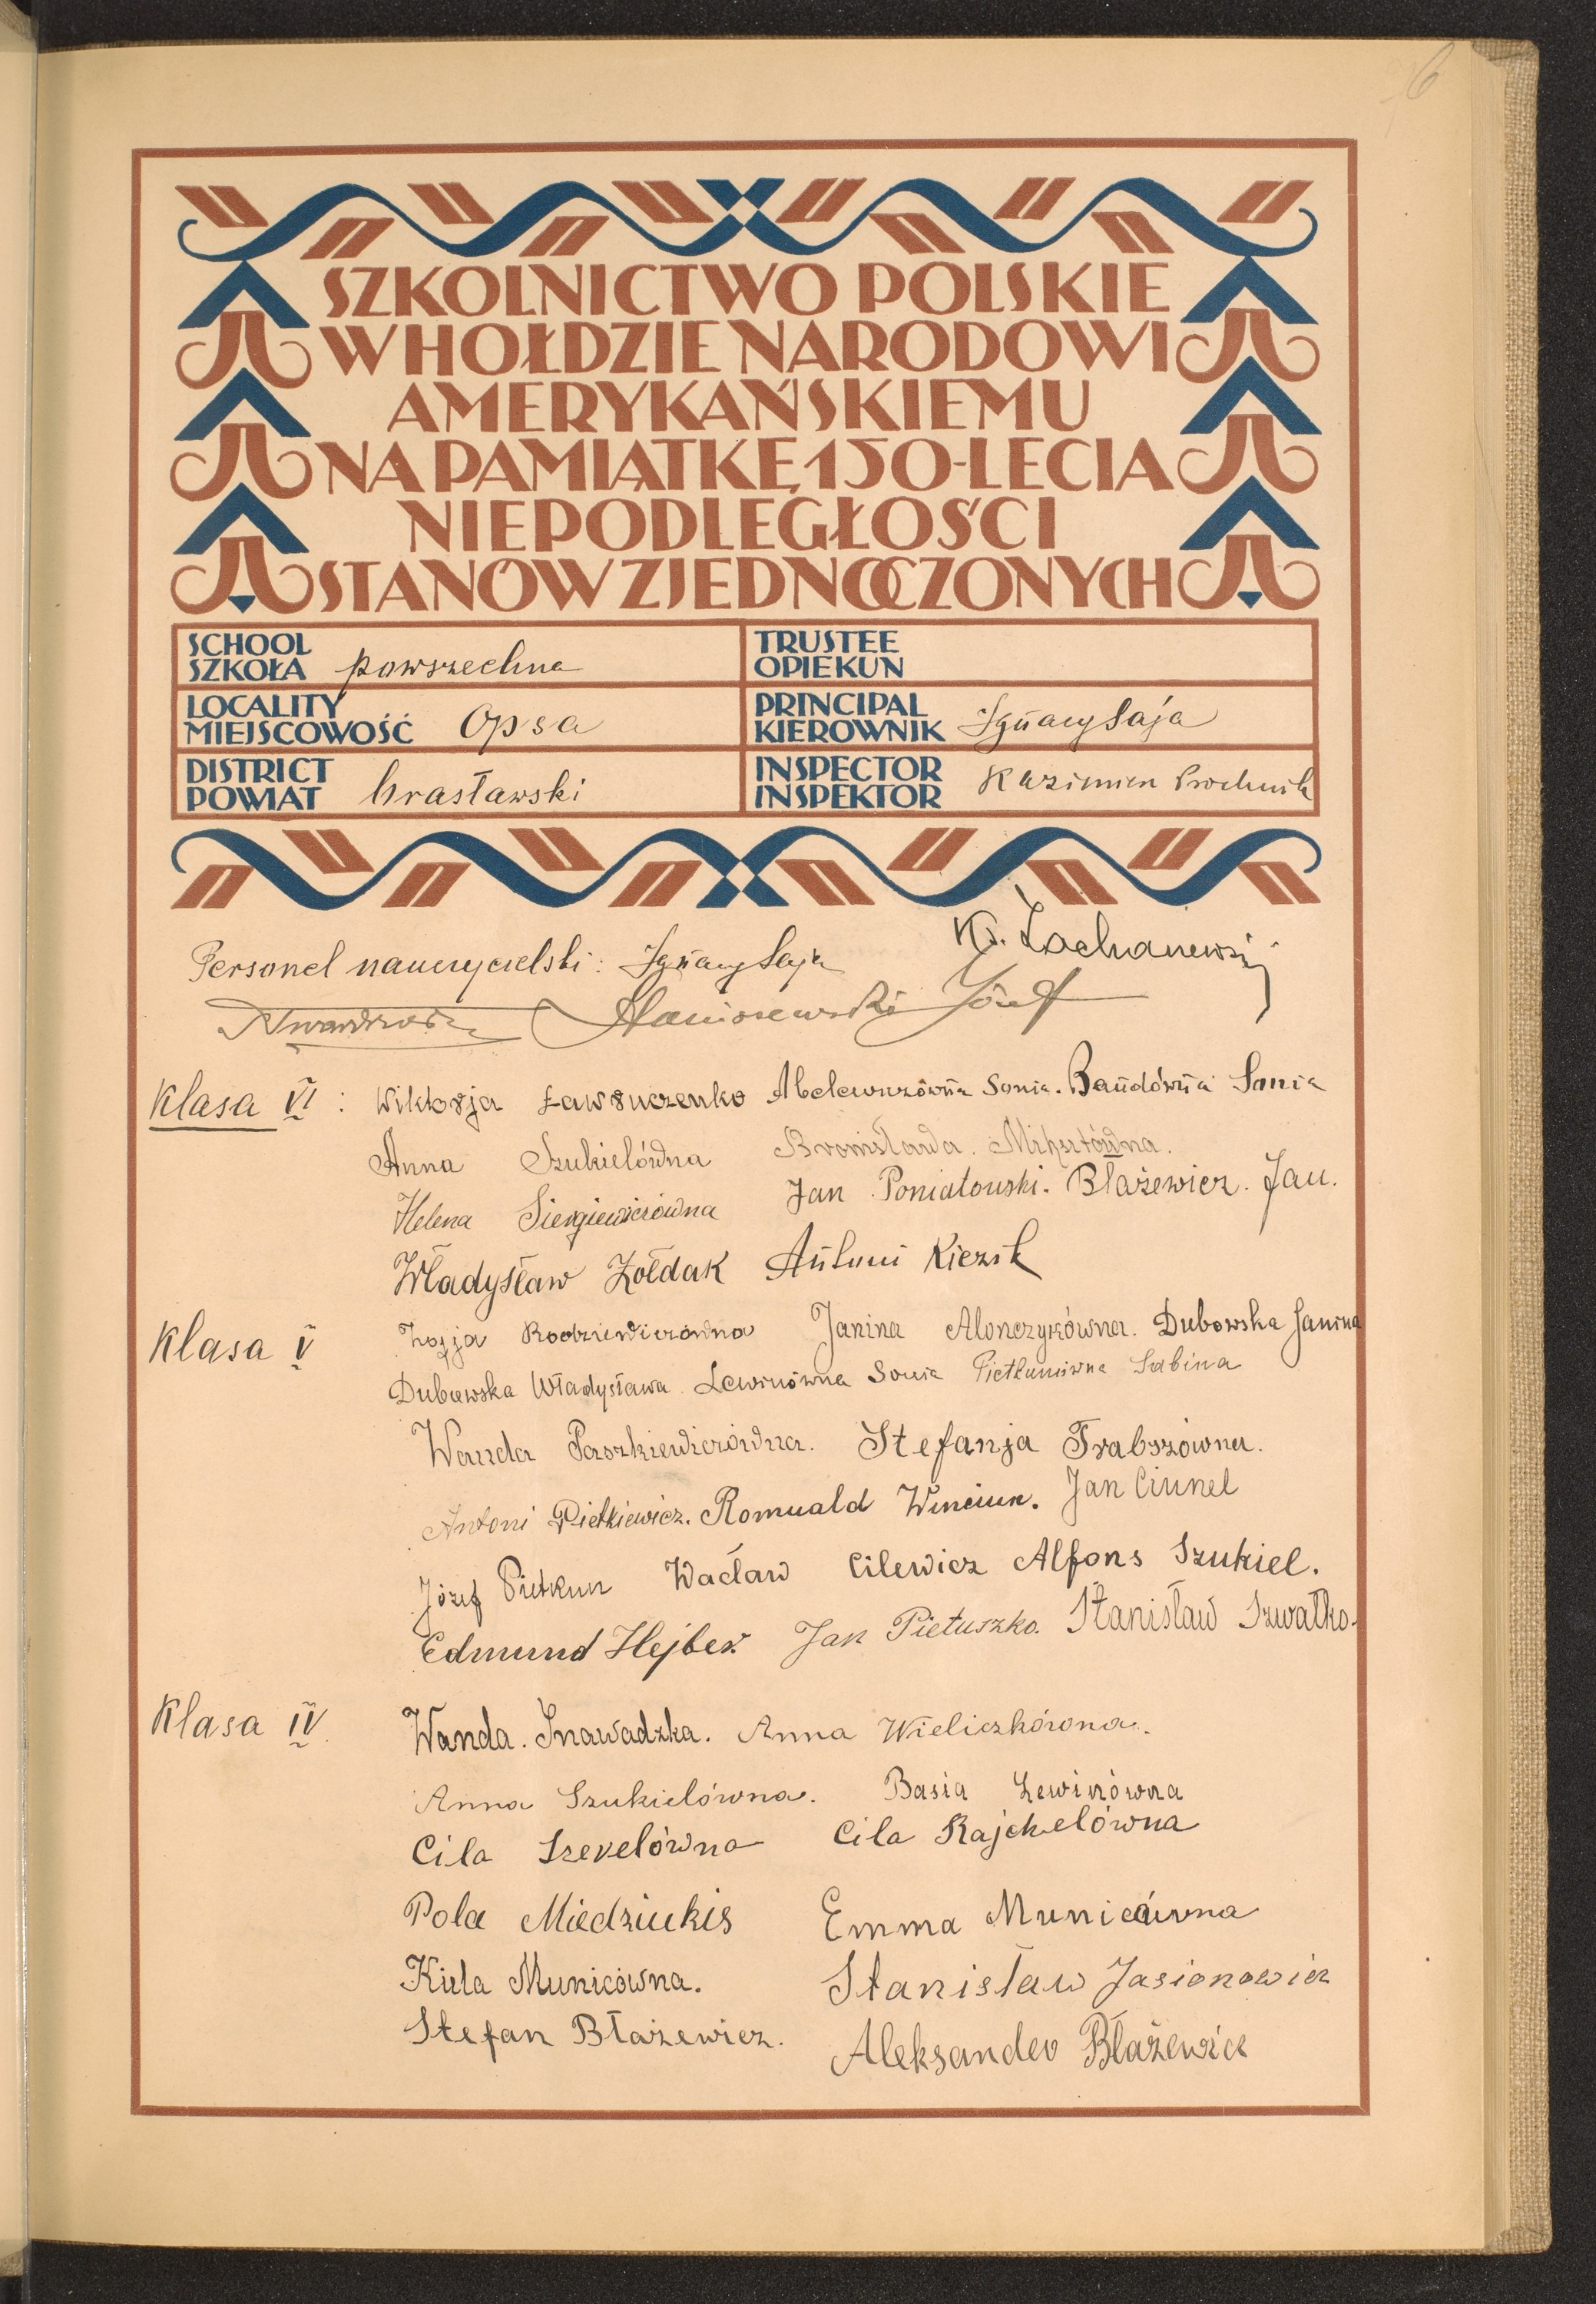 6
SZKOLNICTWO POLSKIE
W HOŁDZIE NARODOWI
AMERYKAŃSKIEMU
NA PAMIĄTKĘ 150-LECIA
NIEPODLEGŁOŚCI
STANÓW ZJEDNOCZONYCH
SCHOOL
SZKOŁA powszechna
TRUSTEE
OPIEKUN
LOCALITY
MIEJSCOWOŚĆ Opsa
PRINCIPAL
KIEROWNIK Ignacy Saja
DISTRICT
POWIAT brasławski
INSPECTOR
INSPEKTOR Kazimierz Prochnik
Personel nauczycielski: Ignacy Saja
Józef
Klasa VI: Wiktorja Ławruczenko Sonia. Sonia
Anna Szukielówna Bronisława.
Helena Siergiewiczówna Jan Poniatowski. Błażewicz. Jan.
Władysław Żołdak Antoni
Klasa V Zofja Rodziewiczówna Janina Alonczykówna. Dubowska Janina
Dubowska Władysława Lewinówna Sonia Pietkunówna Sabina
Wanda Paszkiewiczówna. Stefanja Trabszówna.
Antoni Pietkiewicz. Romuald Winciun. Jan Ciunel
Józef Pietkun Wacław Cilewicz Alfons Szukiel.
Edmund Hejber. Jan Pietuszko. Stanisław Szwałko.
Klasa IV Wanda. Snawadzka. Anna Wieliczkówna.
Anna Szukielówna. Basia Lewinówna
Cila Szerelówna Cila Rajchelówna
Pola Miedziukis Emma Municówna
Municówna. Stanisław Jasionowicz
Stefan Błażewicz. Aleksander Błażewicz